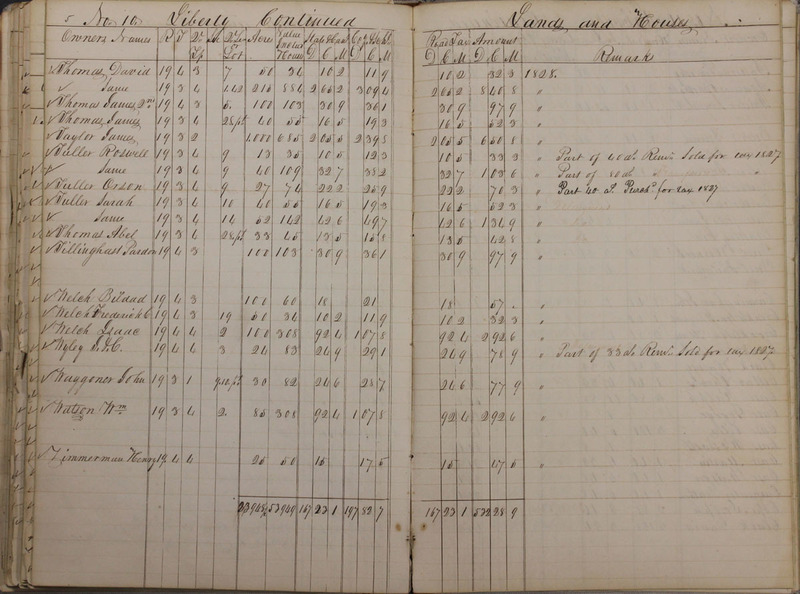 No. 10. Liberty Continued Lands and Houses
Owners Names R T Acre Value Houses D C M D C M Road Tax Amount D C M D C M Remarks
Thomas David 19 4 3 7 50 34 10 2 11 9 10 2 32 3 1828.
Same 19 3 4 2 05 2 3 09 4 2 65 2 8 40 8 "
Thomas James 2nd 19 4 3 5 100 103 30 9 36 1 30 9 97 9 "
Thomas James 19 3 4 28 pt 40 55 16 5 19 3 16 5 52 3 "
Taylor James 19 3 2 1.000 685 2 05 5 2 39 8 2 05 5 6 50 8 "
Tuller Roswell 19 3 4 9 13 35 10 5 12 3 10 5 33 3 " Part of 40 ds. Sold for tax 1827
Same 19 3 4 9 40 109 32 7 38 2 32 7 1 03 6 " Part of 80 ds. " "
Tuller Orson 19 3 4 9 27 74 22 2 25 9 22 2 70 3 " Part 40 a. Purchd for tax 1827
Tuller Sarah 19 3 4 10 40 55 16 5 19 3 16 5 52 3 "
Same 19 3 4 14 52 142 42 6 49 7 42 6 1 34 9 "
Thomas Abel 19 3 4 28 pt 33 45 13 5 15 8 13 5 42 8 "
Tillinghast Pardon 19 4 3 100 103 30 9 36 1 30 9 97 9 "
Welch Bildad 19 4 3 100 60 18 21 18 57 . "
Welch Frederick C 19 4 3 19 50 34 10 2 11 9 10 2 32 3 "
Welch Isaac 19 4 4 2 100 308 92 4 1 07 8 92 4 2 92 6 "
Wyley 19 4 4 3 24 83 24 9 29 1 24 9 78 9 " Part of 33 ds. Sold for tax 1827
Waggoner John 19 3 1 30 82 24 6 28 7 24 6 77 9 "
Watson Wm 19 3 4 2. 85 308 92 4 1 07 8 92 4 2 92 6 "
Zimmerman Henry 19 4 4 25 50 15 17 5 15 47 5 "
53949 167 23 1 197 82 7 167 23 1 532 28 9